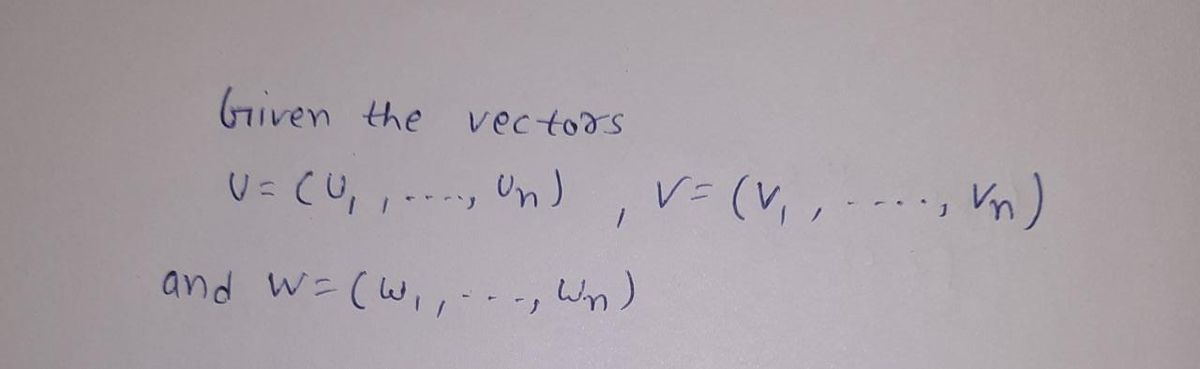 Given the vectors
U = (U₁, ....., Un) , V = (V₁, ....., Vn)
and W = (W₁, ...., Wn)